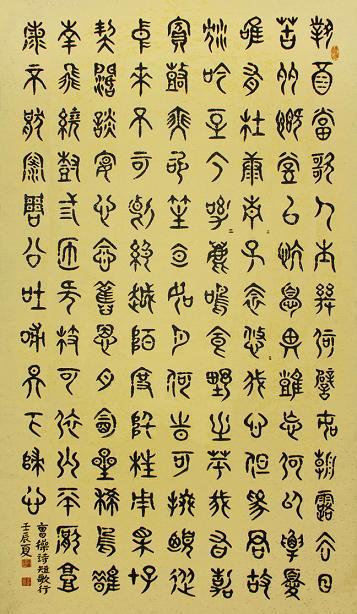 對酒當歌人生幾何譬如朝露去日
苦多慨當以慷憂思難忘何以解憂
唯有杜康青二子衿悠二我心但為君故
沉吟至今呦二鹿鳴食野之苹我有嘉
賓鼓瑟吹笙明如月何時可掇憂從
中來不可斷絕越陌度阡枉用相存
契闊談讌心念舊恩月明星稀烏鵲
南飛繞樹三匝無枝可依山不厭高
不厭深周公吐哺天下歸心
曹操詩短歌行
壬辰夏